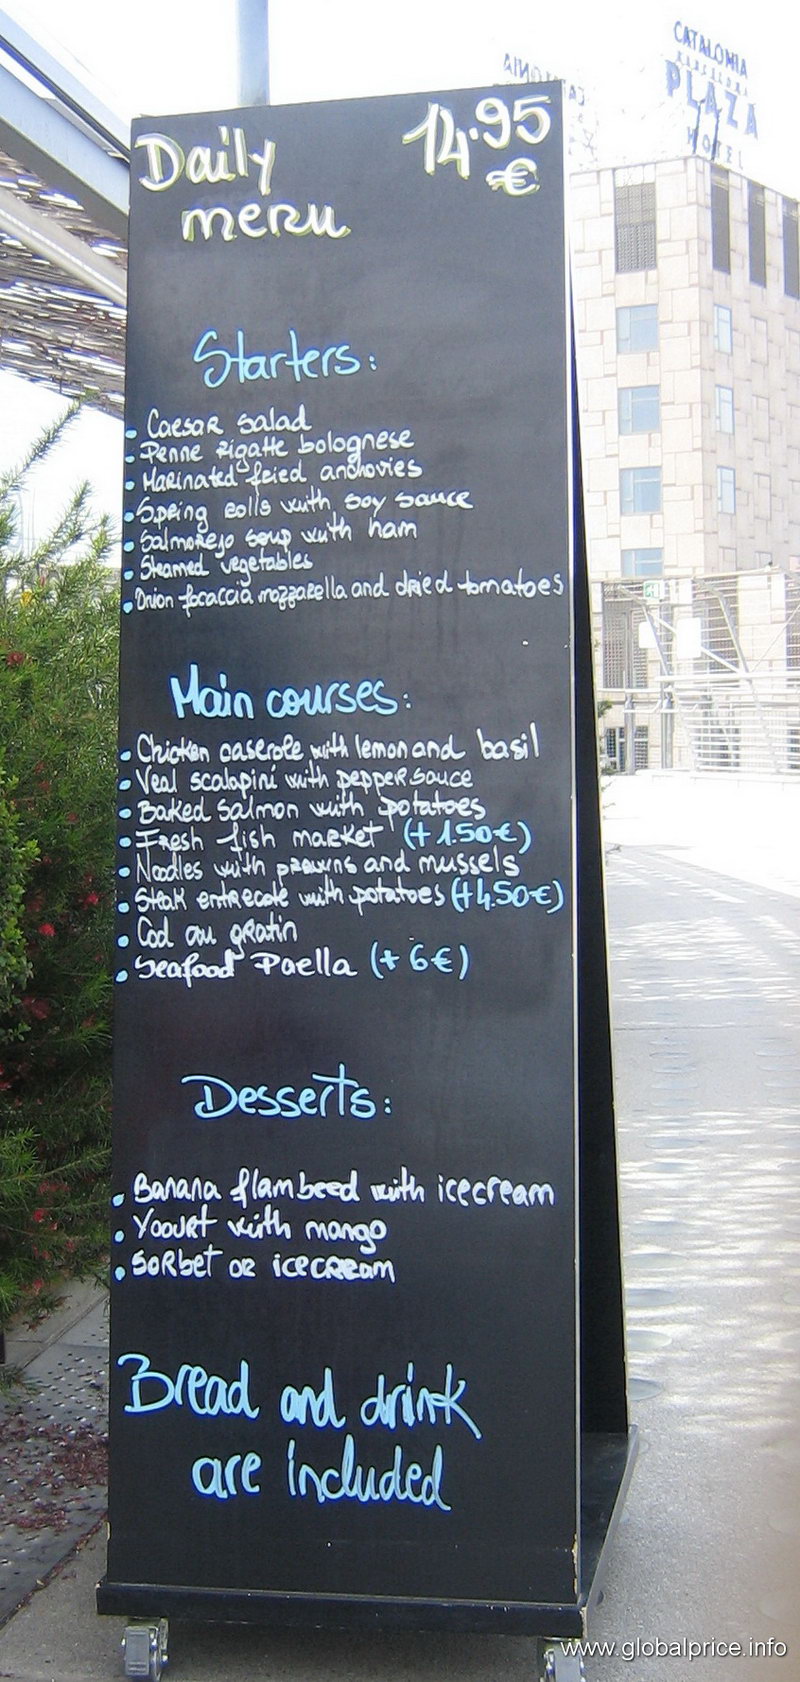 CATALONIA
BARCELONA
PLAZA
HOTEL
Daily 14.95
menu €
Starters:
Caesar Salad
Penne rigatte bolognese
Marinated fried anchovies
Spring rolls with soy sauce
Salmorejo soup with ham
Steamed vegetables
Onion focaccia mozzarella and dried tomatoes
Main courses:
Chicken caserole with lemon and basil
Veal scalopini with pepper sauce
Baked Salmon with potatoes
Fresh fish market (+ 1.50€)
Noodles with prawns and mussels
Steak entrecote with potatoes (+4.50€)
Cod au gratin
Seafood Paella (+ 6€)
Desserts:
Banana flambeed with icecream
Yoourt with mango
Sorbet or icecream
Bread and drink
are included
www.globalprice.info